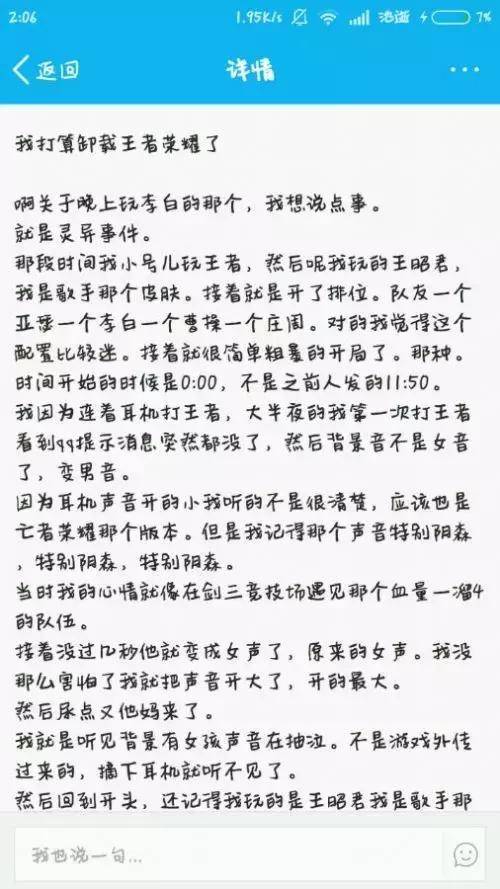 2:06
1.95K/s
返回
详情
我打算卸载王者荣耀了
啊关于晚上玩李白的那个，我想说点事。
就是灵异事件。
那段时间我小号儿玩王者，然后呢我玩的王昭君，
我是歌手那个皮肤。接着就是开了排位。队友一个
亚瑟一个李白一个曹操一个庄周。对的我觉得这个
配置比较迷。接着就很简单粗暴的开局了。那种。
时间开始的时候是0:00，不是之前人发的11:50。
我因为连着耳机打王者，大半夜的我第一次打王者
看到qq提示消息突然都没了，然后背景音不是女音
了，变男音。
因为耳机声音开的小我听的不是很清楚，应该也是
亡者荣耀那个版本。但是我记得那个声音特别阴森
，特别阴森，特别阴森。
当时我的心情就像在剑三竞技场遇见那个血量一溜4
的队伍。
接着没过几秒他就变成女声了，原来的女声。我没
那么害怕了我就把声音开大了，开的最大。
然后尿点又他妈来了。
我就是听见背景有女孩声音在抽泣。不是游戏外传
过来的，摘下耳机就听不见了。
然后回到开头，还记得我玩的是王昭君我是歌手那
我也说一句...